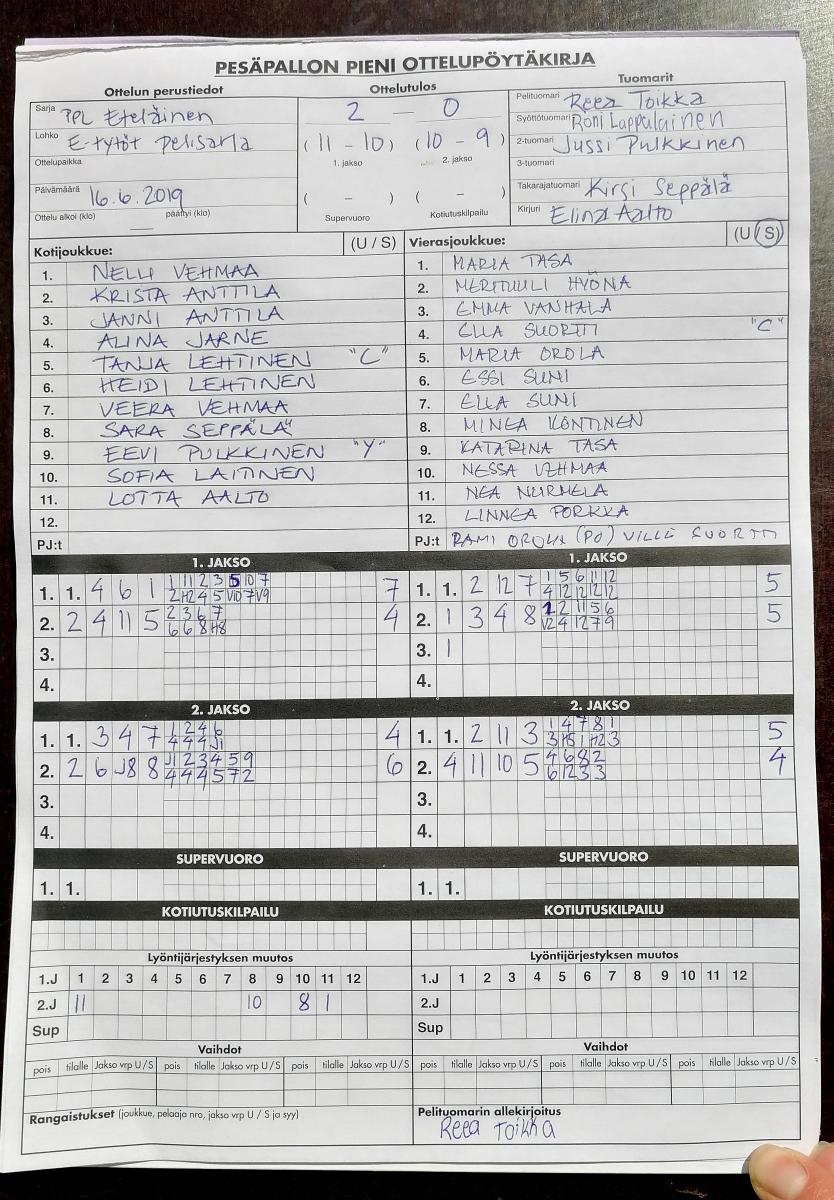 PESÄPALLON PIENI OTTELUPÖYTÄKIRJA
Ottelun perustiedot
Ottelutulos
Tuomarit
Sarja PPL Eteläinen
Lohko E-tytöt pelisarja
Ottelupaikka
Päivämäärä 16.6.2019
Ottelu alkoi (klo) päättyi (klo)
2 — 0
(11 - 10) (10 - 9)
1. jakso 2. jakso
( - ) ( - )
Supervuoro Kotiutuskilpailu
Pelituomari Reea Toikka
Syöttötuomari Roni Lappalainen
2-tuomari Jussi Pulkkinen
3-tuomari
Takarajatuomari Kirsi Seppälä
Kirjuri Elina Aalto
Kotijoukkue: (U / S)
1. NELLI VEHMAA
2. KRISTA ANTTILA
3. JANNI ANTTILA
4. ALINA JARNE
5. TANJA LEHTINEN "C"
6. HEIDI LEHTINEN
7. VEERA VEHMAA
8. SARA SEPPÄLÄ
9. EEVI PULKKINEN "Y"
10. SOFIA LAITINEN
11. LOTTA AALTO
12.
PJ:t
Vierasjoukkue: (U / S)
1. MARIA TASA
2. MERITUULI HYÖNÄ
3. EMMA VANHALA
4. ELLA SUORTTI "C"
5. MARIA OROLA
6. ESSI SUNI
7. ELLA SUNI
8. MINEA KONTINEN
9. KATARINA TASA
10. NESSA VEHMAA
11. NEA NURMELA
12. LINNEA PORKKA
PJ:t RAMI OROLA (PO) VILLE SUORTTI
1. JAKSO
1. 1. 4 6 1 1 11 2 3 5 10 7 7
2 H2 4 5 V10 7 V9
2. 2 4 11 5 2 3 6 7 4
6 6 8 H8
3.
4.
1. JAKSO
1. 1. 2 12 7 1 5 6 11 12 5
4 12 12 12 12
2. 1 3 4 8 1 2 11 5 6 5
V2 4 12 7 9
3. 1
4.
2. JAKSO
1. 1. 3 4 7 1 2 4 6 4
4 4 4 J1
2. 2 6 J8 8 J1 2 3 4 5 9 6
4 4 4 5 7 2
3.
4.
2. JAKSO
1. 1. 2 11 3 1 4 7 8 1 5
3 H5 1 H2 3
2. 4 11 10 5 4 6 8 2 4
6 12 3 3
3.
4.
SUPERVUORO
1. 1.
SUPERVUORO
1. 1.
KOTIUTUSKILPAILU
KOTIUTUSKILPAILU
Lyöntijärjestyksen muutos
1.J 1 2 3 4 5 6 7 8 9 10 11 12
2.J 11 10 8 1
Sup
Lyöntijärjestyksen muutos
1.J 1 2 3 4 5 6 7 8 9 10 11 12
2.J
Sup
Vaihdot
pois tilalle Jakso vrp U/S pois tilalle Jakso vrp U/S pois tilalle Jakso vrp U/S
Vaihdot
pois tilalle Jakso vrp U/S pois tilalle Jakso vrp U/S pois tilalle Jakso vrp U/S
Rangaistukset (joukkue, pelaaja nro, jakso vrp U / S ja syy)
Pelituomarin allekirjoitus
Reea Toikka